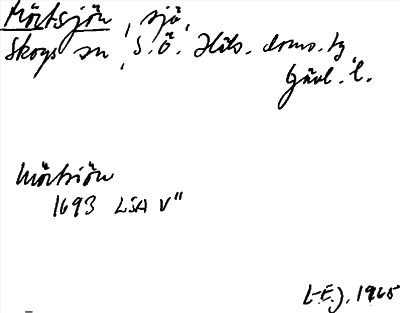 Mörtsjön, sjö,
Skogs sn, S.Ö. Häls. doms. tg
Gävl. l.
Mörtsiön
1693 LSA V"
L-E.J. 1965